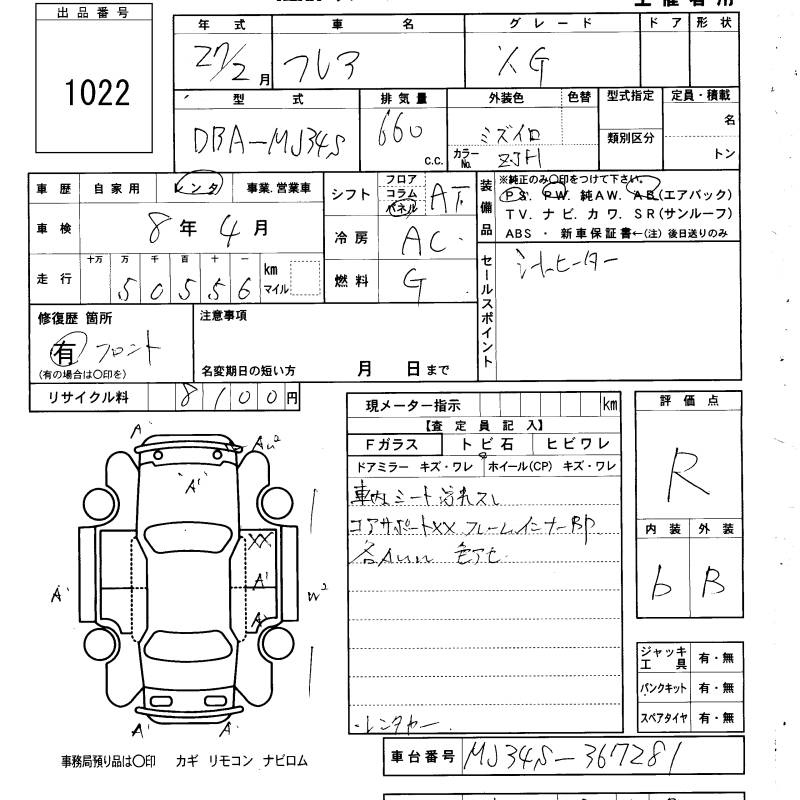 出品番号
1022
年式 車名 グレード ドア 形状
27/2月 フレア XG
型式 排気量 外装色 色替 型式指定 定員・積載
DBA-MJ34S 660 c.c. ミズイロ 類別区分 名
カラーNo. ZJH トン
車歴 自家用 レンタ 事業.営業車
シフト フロア コラム パネル AT
装備品 ※純正のみ〇印をつけて下さい。
PS. PW. 純AW. AB(エアバック)
TV. ナビ. カワ. SR(サンルーフ)
ABS ・ 新車保証書←(注) 後日送りのみ
車検 8年 4月
冷房 AC
走行 十万 万 千 百 十 一 km マイル
50556
燃料 G
セールスポイント シートヒーター
修復歴 箇所
有 フロント
(有の場合は〇印を)
注意事項
名変期日の短い方 月 日まで
リサイクル料 8100円
現メーター指示 km
【査定員記入】
Fガラス トビ石 ヒビワレ
ドアミラー キズ・ワレ ホイール(CP) キズ・ワレ
車内シート汚れスレ
コアサポートXX フレームインナーBP
各AUU 色アセ
・レンタカー
評価点
R
内装 外装
b B
A' AU²
A'
XX
A'
A' A' W²
A' A'
ジャッキ工具 有・無
パンクキット 有・無
スペアタイヤ 有・無
事務局預り品は〇印 カギ リモコン ナビロム
車台番号 MJ34S-367281